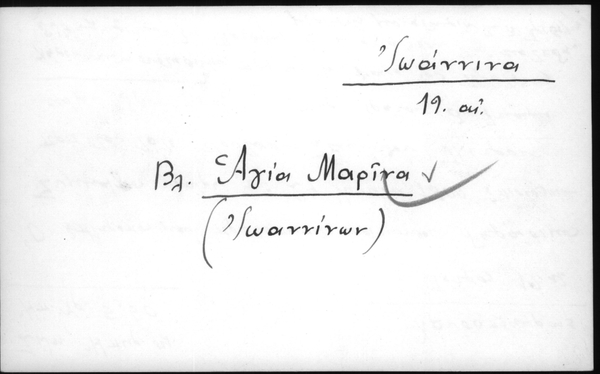 Ἰωάννινα
19. αἰ.
Βλ. Ἁγία Μαρῖνα ✓
(Ἰωαννίνων)